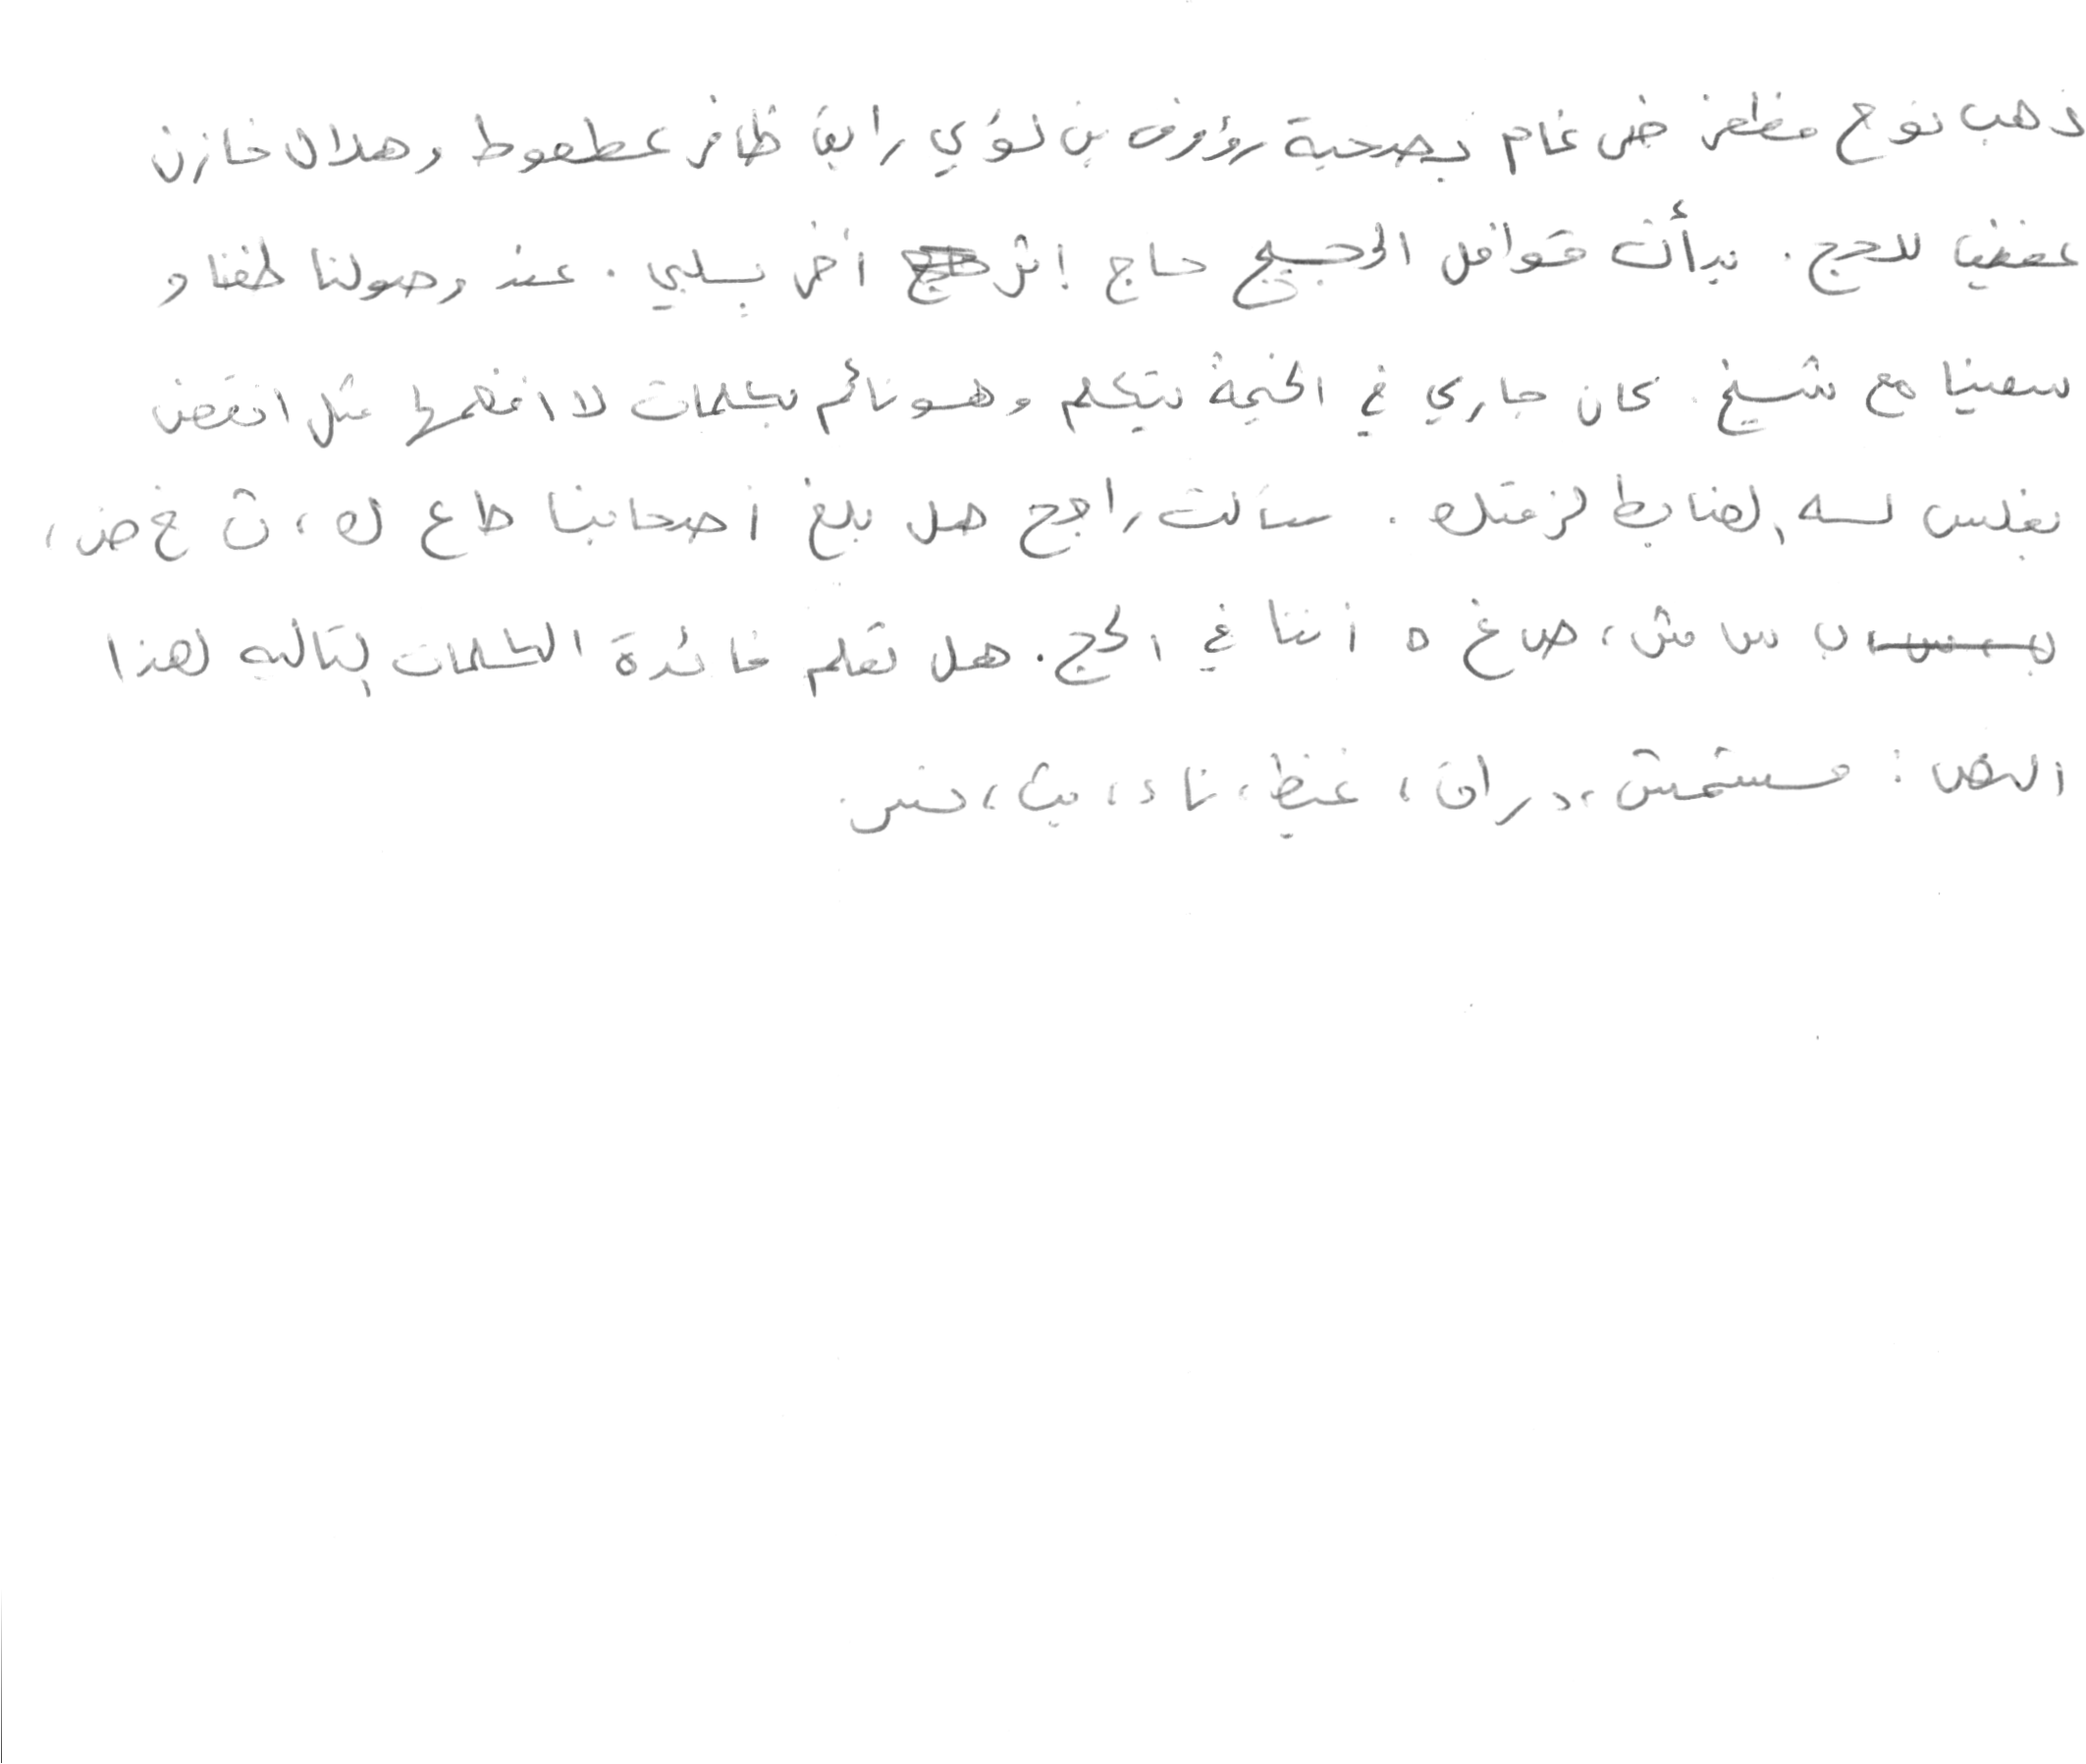 ذهب نوح مظفر ضى غام بصحبة رؤوف بن لؤي رابق ظافر عطعوط وهلال خازن
عفيف للحج. بدأت قوافل الحجيج حاج إثر آخر يلبي. عند وصولنا طفنا و
سعينا مع شيخ. كان جاري في الخيمة يتكلم وهو نائم بكلمات لا افهمها مثل انقض
يغلس لسه الضابط لزعتك. سألت راجح هل بلغ أصحابنا طاع ك، ث غ ض،
ب س ش، ص غ ه أننا في الحج. هل تعلم فائدة الكلمات التالية لهذا
النص: مستمش، دراق، غيظ، ناء، بيث، حنس.